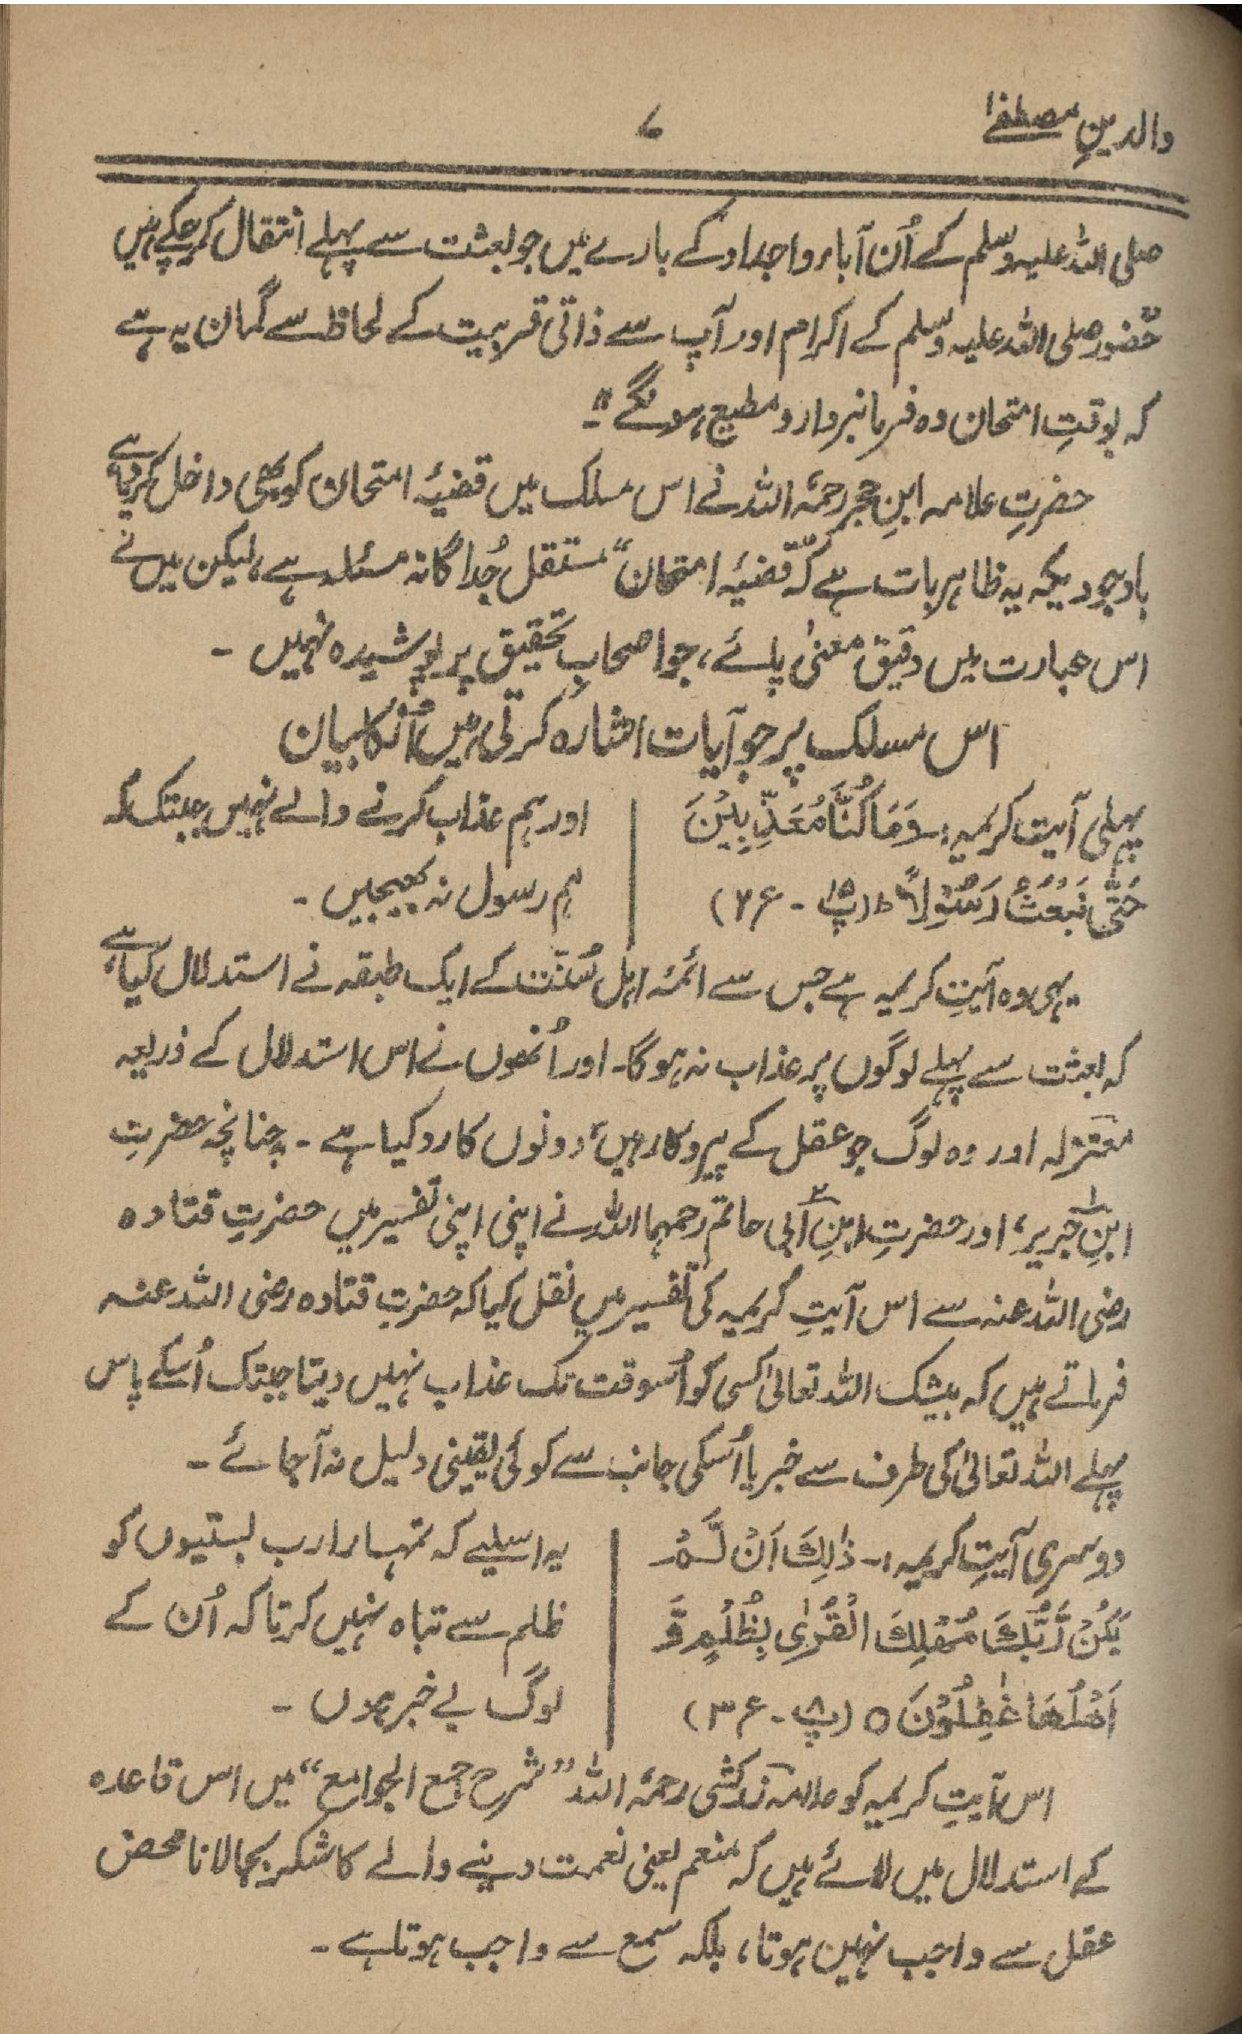 والدینِ مصطفےٰ
۷
صلی اللہ علیہ وسلم کے اُن آباء و اجداد کے بارے میں جو بعثت سے پہلے انتقال کر چکے ہیں
حضور صلی اللہ علیہ وسلم کے اکرام اور آپ سے ذاتی قربیت کے لحاظ سے گمان یہ ہے
کہ بوقتِ امتحان وہ فرمانبردار و مطیع ہونگے"۔
حضرتِ علامہ ابنِ حجر رحمۃ اللہ نے اس مسلک میں قضیۂ امتحان کو بھی داخل کر دیا ہے،
باوجودیکہ یہ ظاہر بات ہے کہ "قضیۂ امتحان" مستقل جُداگانہ مسئلہ ہے، لیکن میں نے
اس عبارت میں دقیق معنیٰ پائے، جو اصحابِ تحقیق پر پوشیدہ نہیں ۔
اس مسلک پر جو آیات اشارہ کرتی ہیں اُن کا بیان
پہلی آیت کریمہ:۔ وَمَا كُنَّا مُعَذِّبِيْنَ
حَتّٰى نَبْعَثَ رَسُوْلًا ط (پ ۱۵ ۔ ع ۲)
اور ہم عذاب کرنے والے نہیں جبتک کہ
ہم رسول نہ بھیجیں ۔
یہی وہ آیتِ کریمہ ہے جس سے ائمۂ اہل سُنّت کے ایک طبقہ نے استدلال کیا ہے،
کہ بعثت سے پہلے لوگوں پر عذاب نہ ہوگا۔ اور اُنھوں نے اس استدلال کے ذریعہ
معتزلہ اور وہ لوگ جو عقل کے پیروکار ہیں، دونوں کا رد کیا ہے ۔ چنانچہ حضرتِ
ابنِ جریر۱، اور حضرتِ ابنِ ابی حاتم۲ رحمہما اللہ نے اپنی اپنی تفسیر میں حضرتِ قتادہ
رضی اللہ عنہ سے اس آیتِ کریمہ کی تفسیر میں نقل کیا کہ حضرتِ قتادہ رضی اللہ عنہ
فرماتے ہیں کہ بیشک اللہ تعالیٰ کسی کو اُسوقت تک عذاب نہیں دیتا جبتک اُسکے پاس
پہلے اللہ تعالیٰ کی طرف سے خبر یا اُسکی جانب سے کوئی یقینی دلیل نہ آجائے ۔
دوسری آیتِ کریمہ:۔ ذٰلِكَ اَنْ لَّمْ
يَكُنْ رَّبُّكَ مُهْلِكَ الْقُرٰى بِظُلْمٍ وَّ
اَهْلُهَا غٰفِلُوْنَ ○ (پ ۸ ۔ ع ۳)
یہ اسلیے کہ تمہارا رب بستیوں کو
ظلم سے تباہ نہیں کرتا کہ اُن کے
لوگ بے خبر ہوں ۔
اس آیتِ کریمہ کو علامہ زرکشی رحمۃ اللہ "شرح جمع الجوامع" میں اس قاعدہ
کے استدلال میں لائے ہیں کہ منعم یعنی نعمت دینے والے کا شکر بجالانا محض
عقل سے واجب نہیں ہوتا، بلکہ سمع سے واجب ہوتا ہے ۔